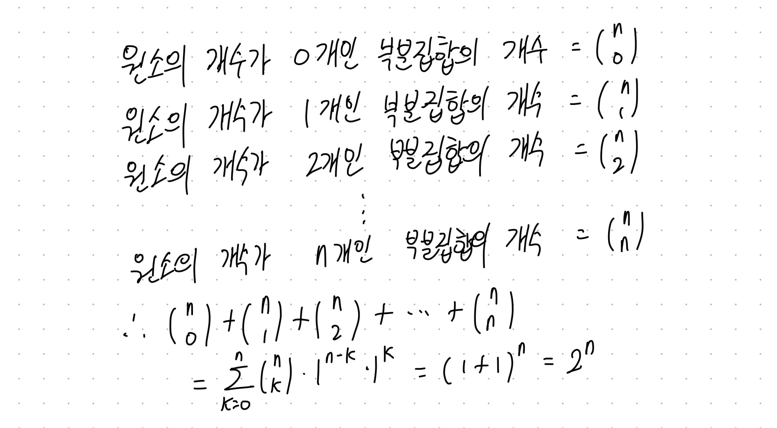 원소의 개수가 0개인 부분집합의 개수 = (n 0)
원소의 개수가 1개인 부분집합의 개수 = (n 1)
원소의 개수가 2개인 부분집합의 개수 = (n 2)
⋮
원소의 개수가 n개인 부분집합의 개수 = (n n)
∴ (n 0) + (n 1) + (n 2) + ⋯ + (n n)
= ∑_{k=0}^{n} (n k) · 1^{n-k} · 1^k = (1+1)^n = 2^n